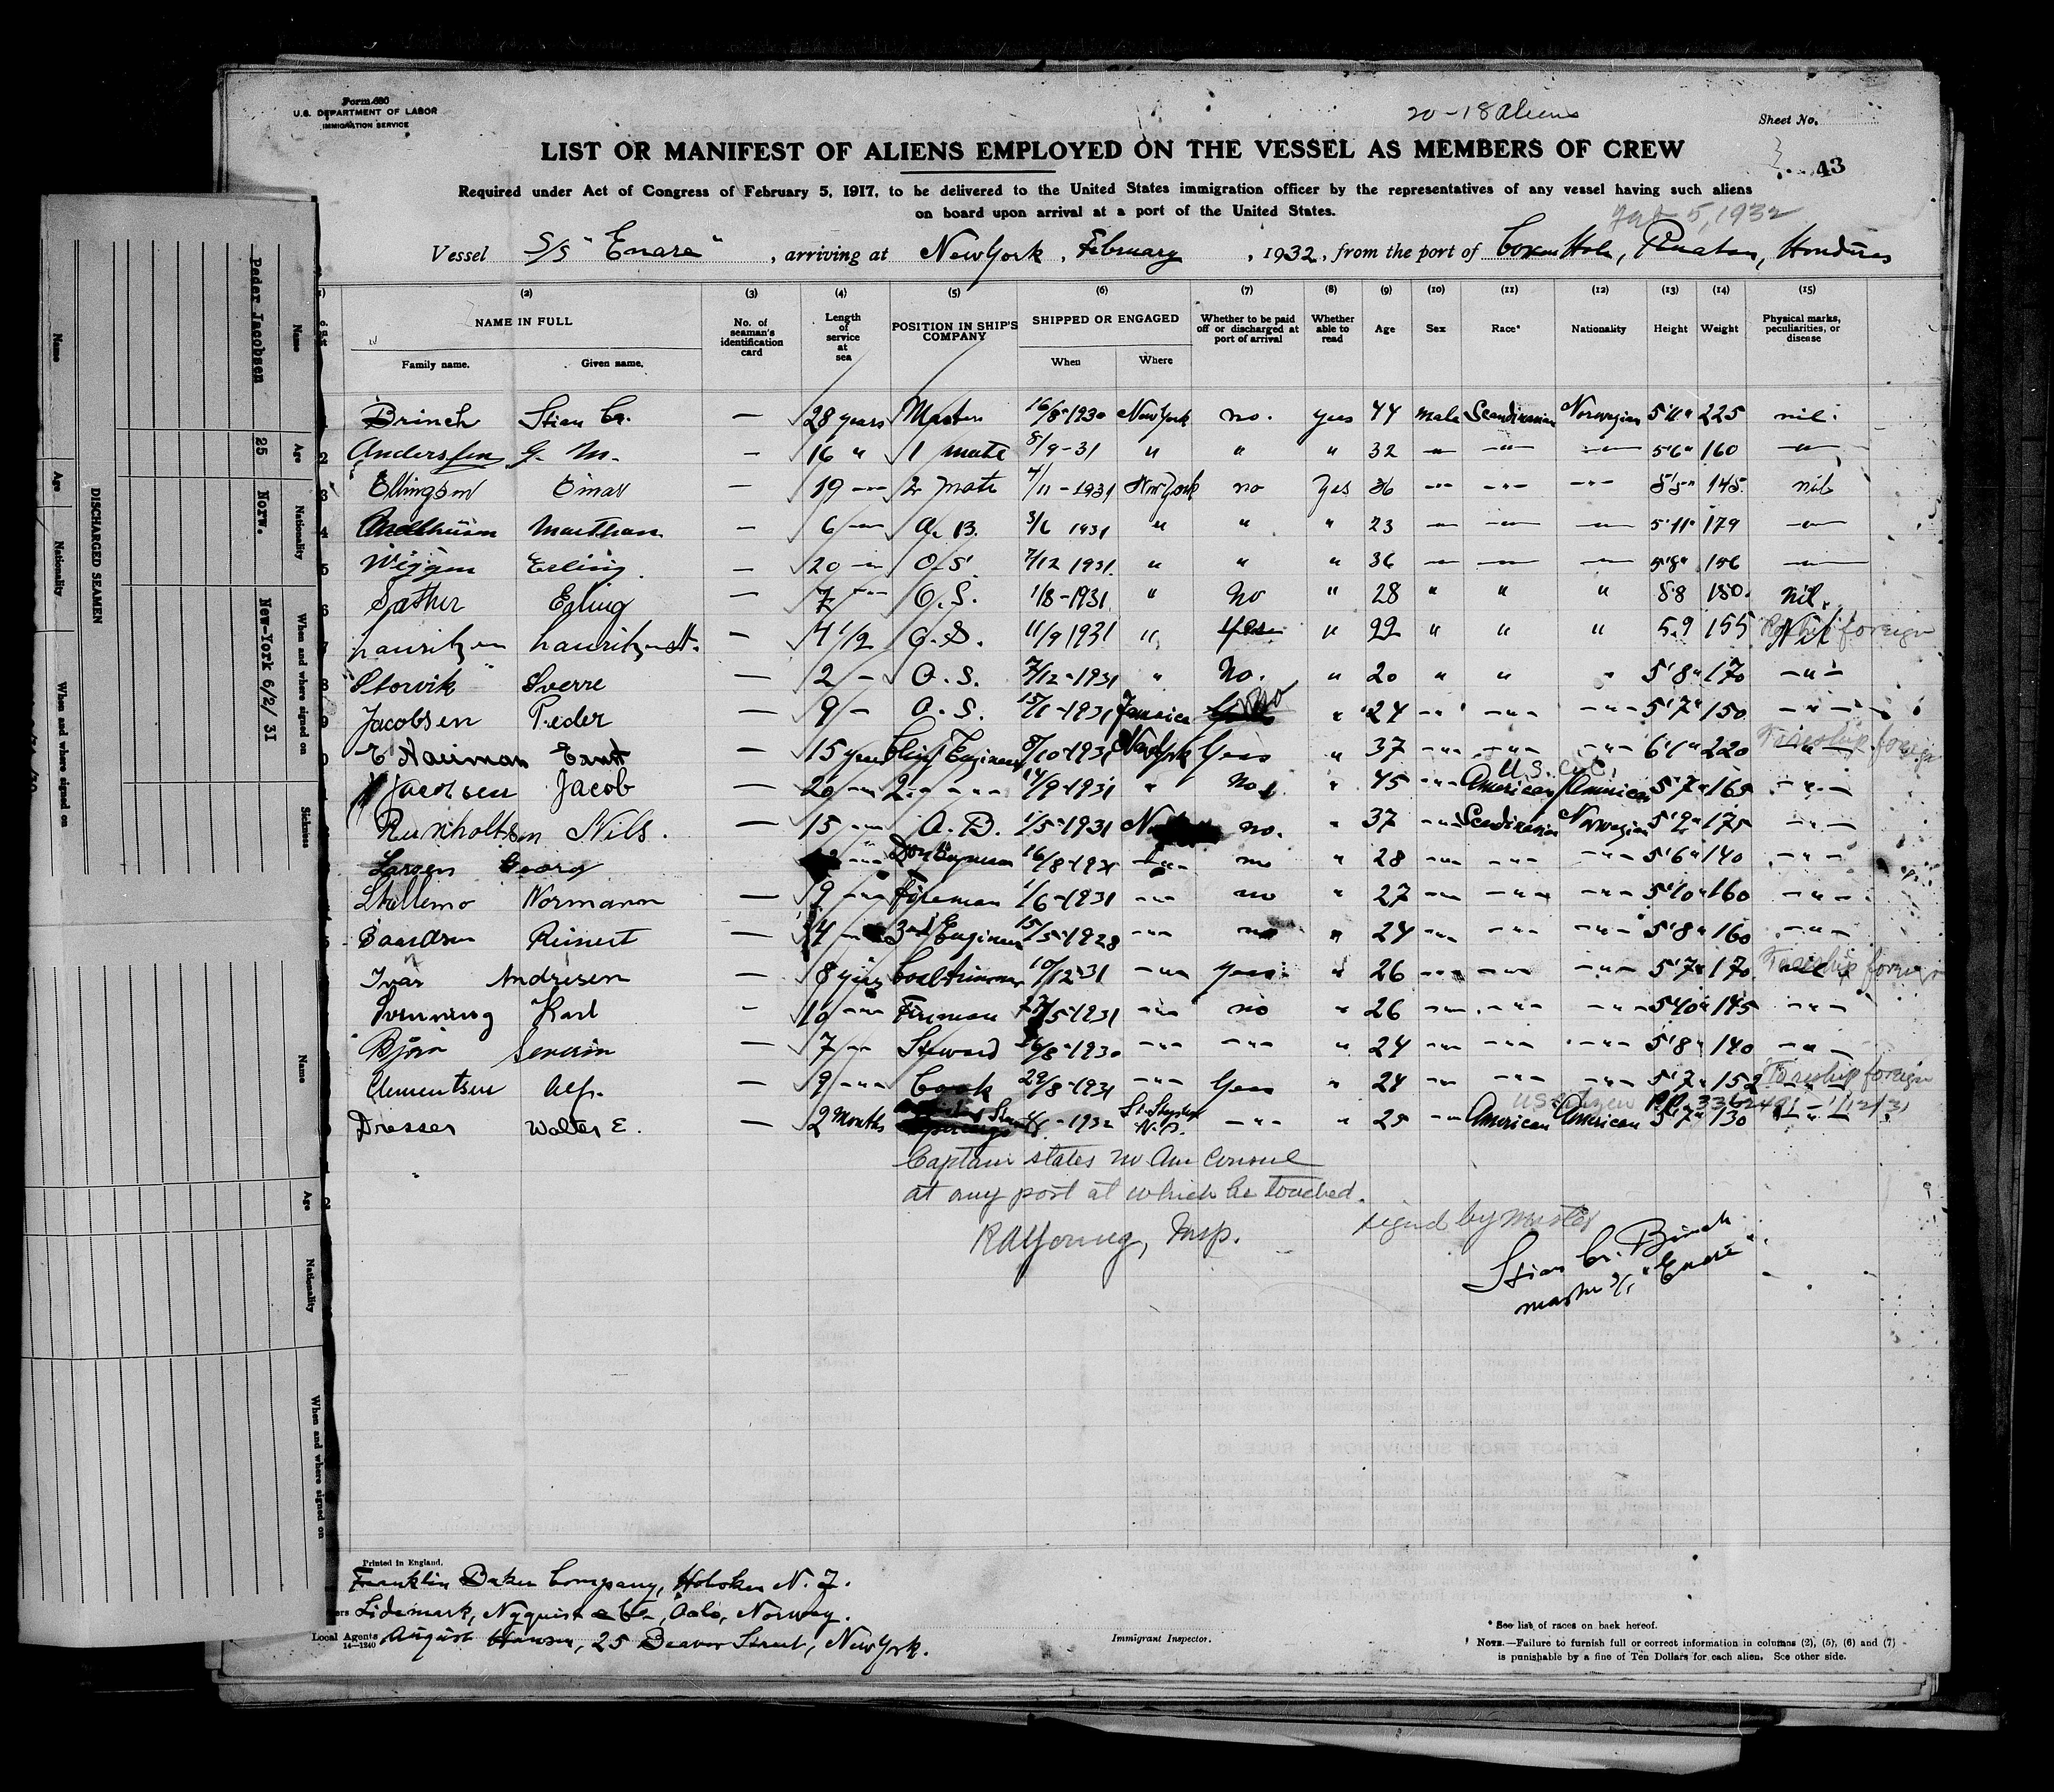 Form 680
U.S. DEPARTMENT OF LABOR
IMMIGRATION SERVICE
20-18 Aliens
Sheet No.
LIST OR MANIFEST OF ALIENS EMPLOYED ON THE VESSEL AS MEMBERS OF CREW
43
Required under Act of Congress of February 5, 1917, to be delivered to the United States immigration officer by the representatives of any vessel having such aliens
on board upon arrival at a port of the United States.
5, 1932
Vessel S/S "Enare", arriving at New York, February, 1932, from the port of Coxen Hole, Ruatan, Honduras
(2) (3) (4) (5) (6) (7) (8) (9) (10) (11) (12) (13) (14) (15)
NAME IN FULL No. of seaman's identification card Length of service at sea POSITION IN SHIP'S COMPANY SHIPPED OR ENGAGED Whether to be paid off or discharged at port of arrival Whether able to read Age Sex Race* Nationality Height Weight Physical marks, peculiarities, or disease
Family name. Given name. When Where
Brinch Stian Cr. — 28 years Master 16/8-1930 New York no. yes 44 male Scandinavian Norwegian 5'11" 225 nil.
Anderssen G. M. — 16 " 1 mate 8/9-31 " " " 32 — — — 5'6" 160 —
Ellingsen Einar — 19 -"- 2 mate 7/11-1931 New York no Yes 36 -"- -"- -"- 5'5" 145 nil
Marthan — 6 -"- A.B. 3/6 1931 " " " 23 — — — 5'11" 179 —
Wiggen Erling — 20 -"- O.S. 7/12 1931 " " " 36 — — — 5'8" 156 —
Sather Erling — 7 -"- O.S. 1/8-1931 " No " 28 " " " 5.8 150. nil.
Lauritzen — 4 1/2 O.S. 11/9 1931 " yes " 22 " " " 5.9 155 Nil foreign
Storvik Sverre — 2 — O.S. 7/12-1931 " No. " 20 " " " 5'8" 170 -"-
Jacobsen Peder — 9 — O.S. 15/1-1931 Jamaica no " 24 -"- -"- -"- 5'7" 150 -"-
E Nauman — 15 years Chief Engineer 8/10-1931 New York Yes " 37 -"- -"- -"- 6'1" 220 -"- foreign
U.S. Cit.
Jacobsen Jacob — 20 -"- 2 -"- 14/9-1931 " No " 45 -"- American American 5'7" 165 -"-
Reinholtsen Nils. — 15 -"- A.B. 1/5-1931 no. " 37 -"- Scandinavian Norwegian 5'9" 175 -"-
Larsen Georg -"- Donkeyman 16/8-1931 -"- no " 28 -"- -"- -"- 5'6" 140 -"-
Stallemo Normann — 9 -"- Fireman 1/6-1931 -"- no " 27 -"- -"- -"- 5'10" 160 -"-
Baardsen Reinert — 4 -"- 3rd Engineer 15/5-1928 -"- no " 24 -"- -"- -"- 5'8" 160 -"-
Ivar Andresen — 8 years Coaltrimmer 10/12-31 -"- yes " 26 -"- -"- -"- 5'7" 170 nil foreign
Svenning Karl - 10 -"- Fireman 5-1931 -"- no " 26 -"- -"- -"- 5'10" 145 -"-
Bjørn Severin — 7 -"- Steward 16/8-1930 -"- -"- " 24 -"- -"- -"- 5'8" 140 -"-
Clementsen Alf. — 9 -"- Cook 29/8-1931 -"- Yes " 24 -"- -"- -"- 5'7" 152 foreign
US citizen
Dresser Walter E. — 2 Months 1932 St. Stephen N.B. -"- " 25 -"- American American 5'7" 130 -"-
Captain states no Am Consul
at any port at which he touched.
R A Young, Insp.
signed by master
Stian Cr. Brinch
master S/S "Enare"
Printed in England.
Franklin Baker Company, Hoboken N.J.
Lidemark, Nyquist & Co, Oslo, Norway.
Local Agents August Hansen, 25 Beaver Street, New York.
14—1240
Immigrant Inspector.
* See list of races on back hereof.
NOTE.—Failure to furnish full or correct information in columns (2), (5), (6) and (7)
is punishable by a fine of Ten Dollars for each alien. See other side.
DISCHARGED SEAMEN
Name Age Nationality When and where signed on Sickness
Peder Jacobsen 25 Norw. New-York 6/2/31
Name Age Nationality When and where signed on
Name Age Nationality When and where signed on